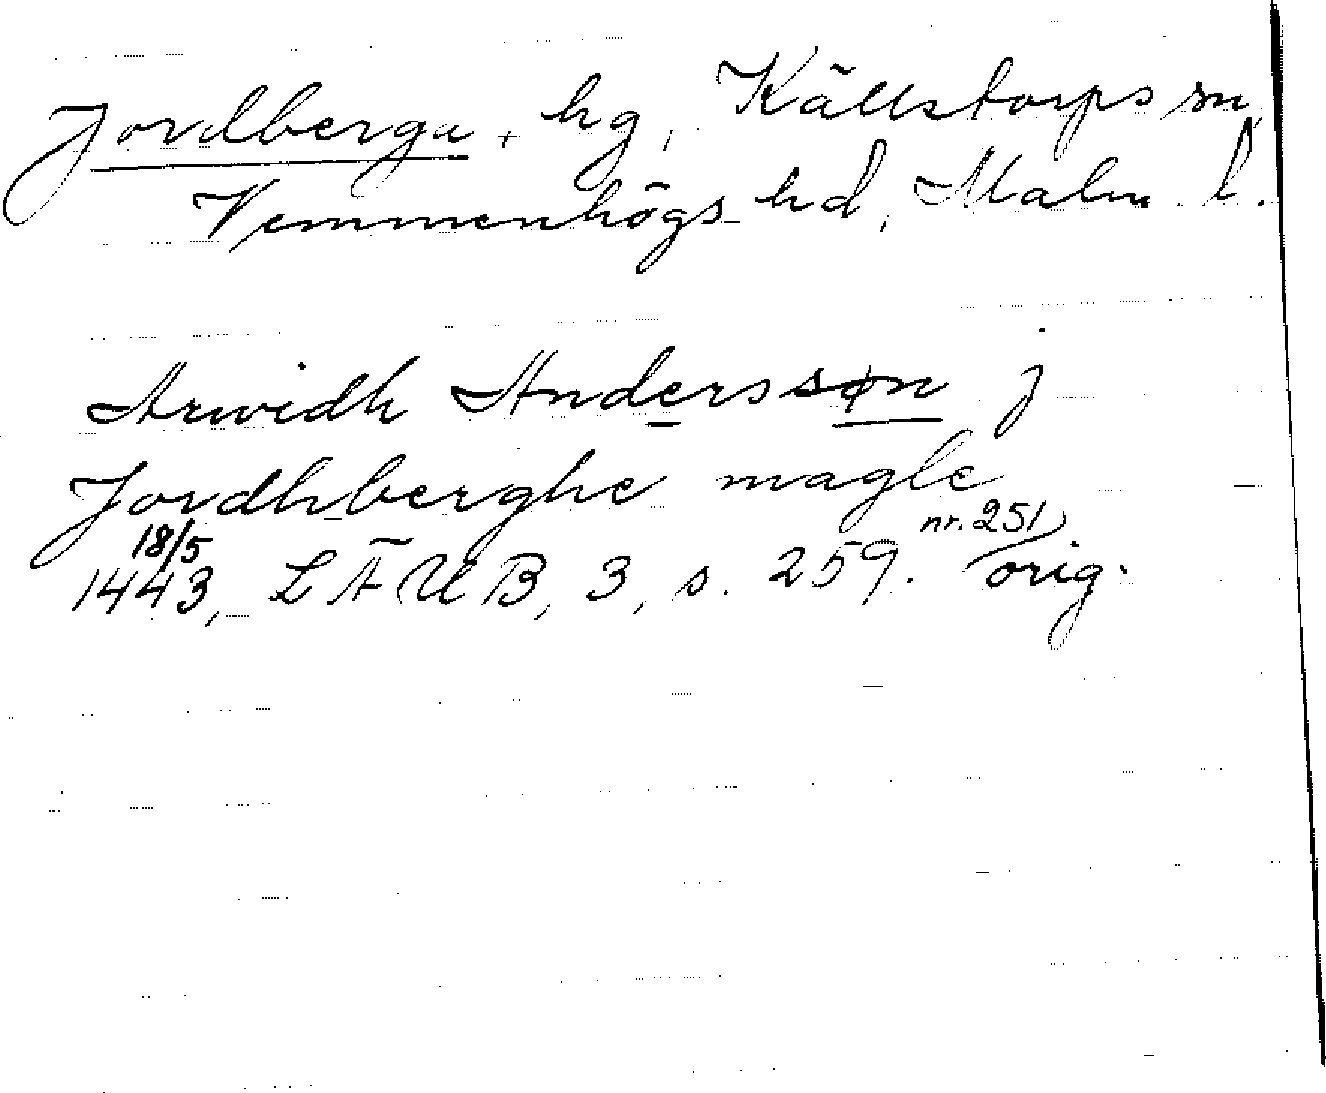 Jordberga + hg, Källstorps sn,
Vemmenhögs hd, Malm. l.
Arwidh Anderssøn j
Jordhberghe magle
18/5 nr. 251
1443, LÄUB, 3, s. 259. orig.